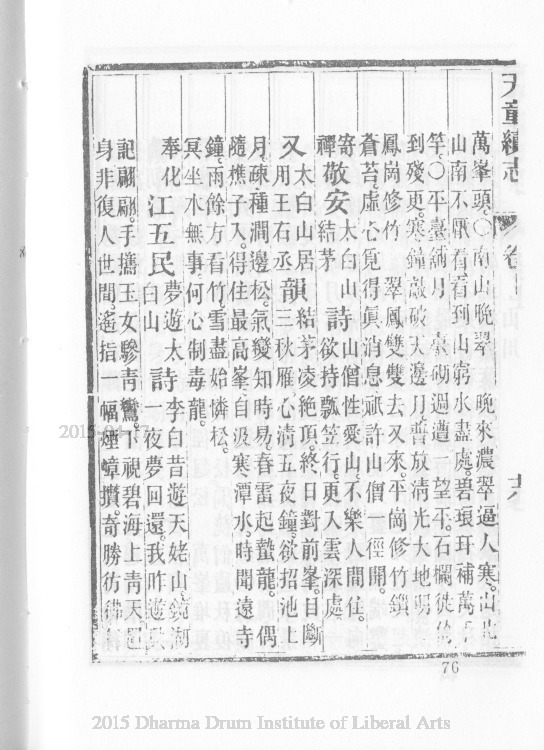 天童續志 卷 十六
萬峯頭。○南山晚翠 晚來濃翠逼人寒。山北
山南不厭看。看到山窮水盡處。碧琅玕補萬
竿。○平臺舖月 臺砌週遭一望平。石欄徙倚
到殘更。寒鐘敲破天邊月。普放淸光大地明。
鳳崗修竹 翠鳳雙雙去又來。平崗修竹鎖
蒼苔。虛心覓得眞消息。祇許山僧一徑開。
寄禪敬安 太白山結茅詩 山僧性愛山。不樂人間住。欲持瓢笠行。更入雲深處。
又 太白山居用王右丞韻 結茅凌絶頂。終日對前峯。目斷三秋雁。心淸五夜鐘。欲招池上
月。疎種澗邊松。氣變知時易。春雷起蟄龍。 偶
隨樵子入。得住最高峯。自汲寒潭水。時聞遠寺
鐘。雨餘方看竹。雪盡始憐松。
冥坐水無事。何心制毒龍。
奉化江五民 夢遊太白山詩 李白昔遊天姥山。鏡湖一夜夢回還。我昨遊
記翩翩。手攜玉女驂靑鸞。下視碧海上靑天。
身非復人世間。遙指一幅煙嶂攢。奇勝彷彿
76
2015 Dharma Drum Institute of Liberal Arts